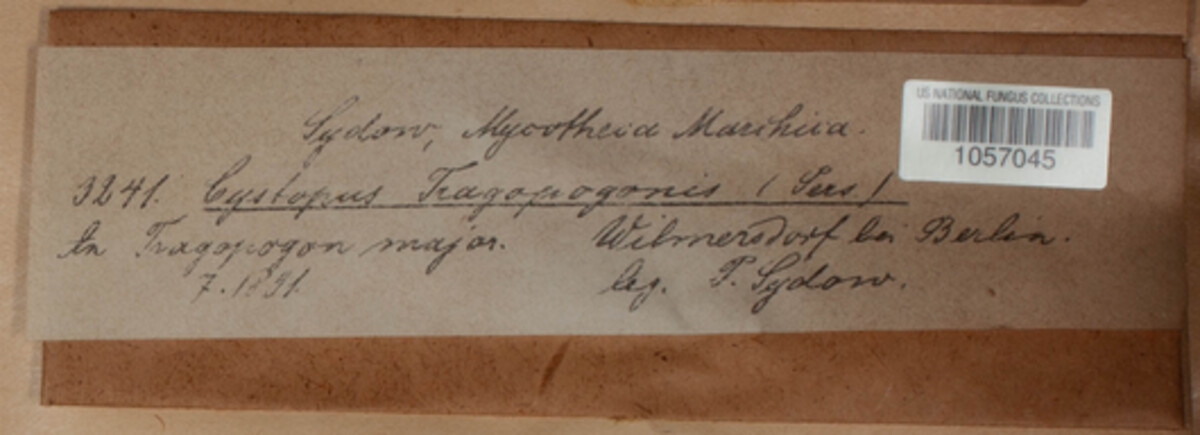 US NATIONAL FUNGUS COLLECTIONS
1057045
Sydow, Mycotheca Marchica.
3241. Cystopus Tragopogonis (Pers.)
In Tragopogon major. Wilmersdorf bei Berlin.
7. 1891. leg. P. Sydow.